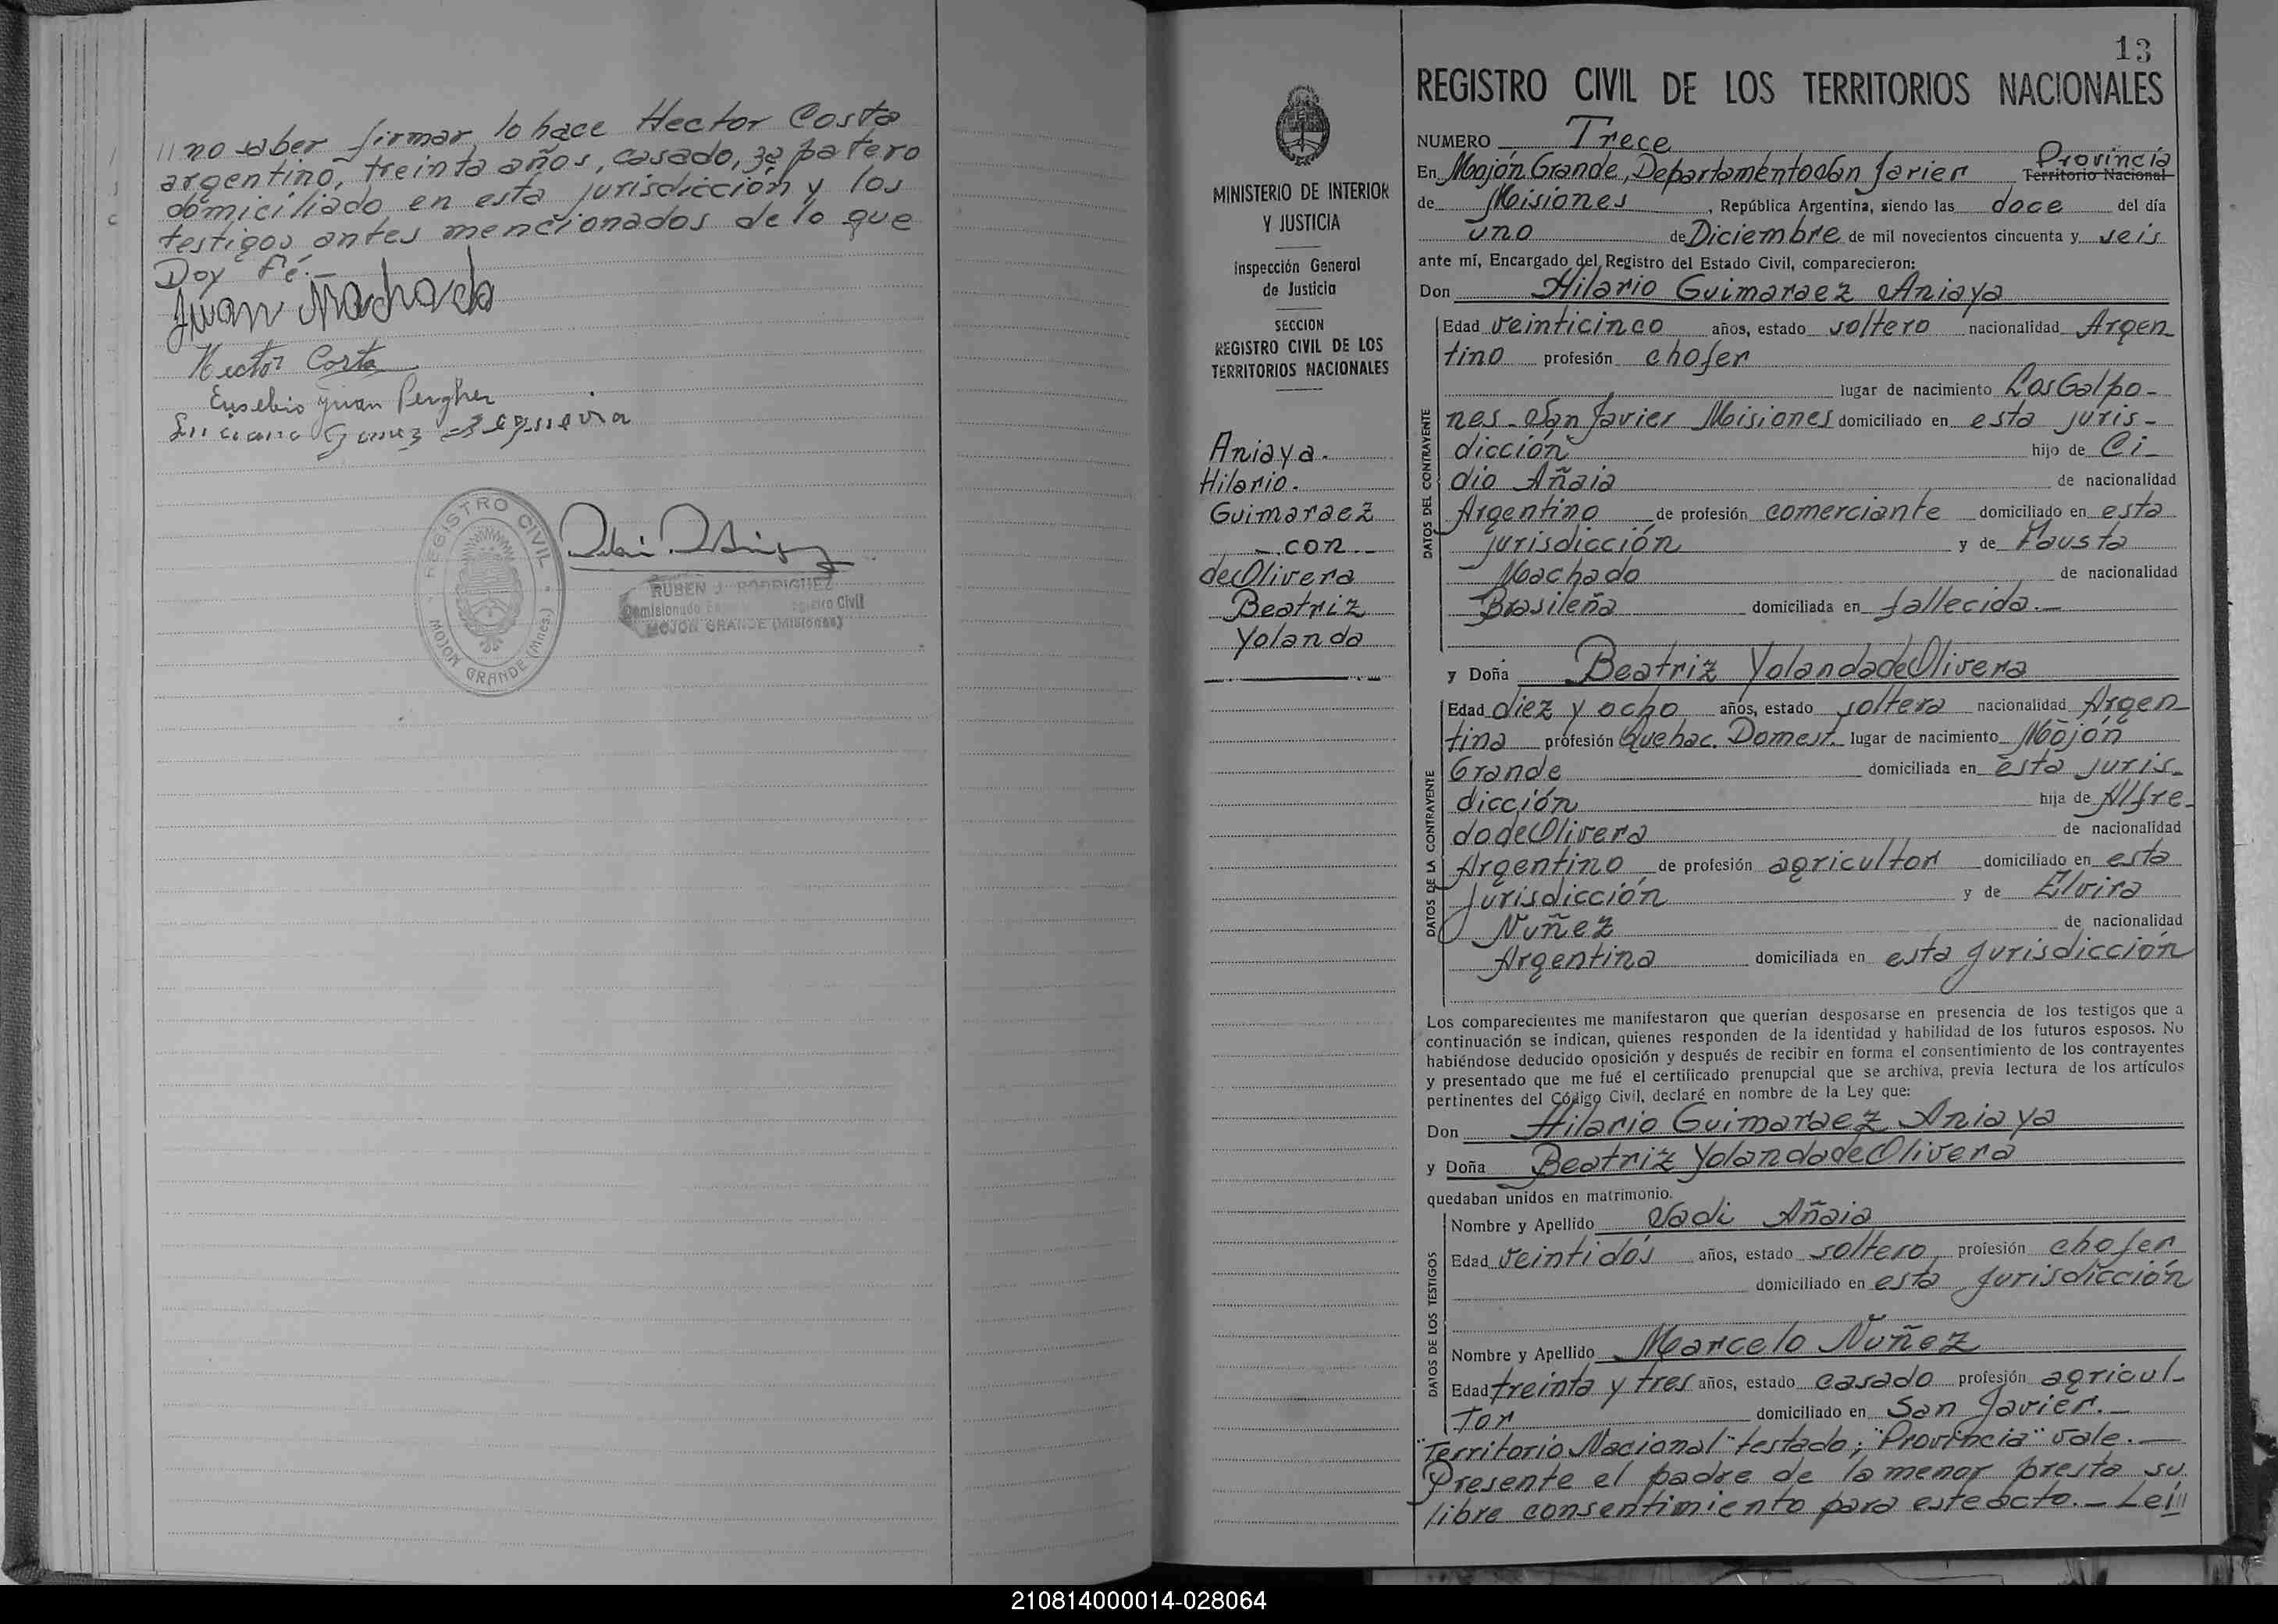 // no saber firmar, lo hace Hector Costa
argentino, treinta años, casado, zapatero
domiciliado en esta jurisdicción y los
testigos antes mencionados de lo que
Doy Fé.-
Juan Machado
Hector Costa
Eusebio Juan Pergher
Gomez
REGISTRO CIVIL
MOJON GRANDE (Mnes.)
RUBEN J. RODRIGUEZ
Comisionado
Civil
MOJON GRANDE (Misiones)
13
MINISTERIO DE INTERIOR
Y JUSTICIA
Inspección General
de Justicia
SECCION
REGISTRO CIVIL DE LOS
TERRITORIOS NACIONALES
Aniaya.
Hilario.
Guimaraez
- con -
de Olivera
Beatriz
Yolanda
REGISTRO CIVIL DE LOS TERRITORIOS NACIONALES
NUMERO Trece
Provincia
En Mojón Grande, Departamento San Javier Territorio Nacional
de Misiones, República Argentina, siendo las doce del día
uno de Diciembre de mil novecientos cincuenta y seis
ante mí, Encargado del Registro del Estado Civil, comparecieron:
Don Hilario Guimaraez Aniaya
DATOS DEL CONTRAYENTE
Edad veinticinco años, estado soltero nacionalidad Argen
tino profesión chofer
lugar de nacimiento Los Galpo-
nes - San Javier Misiones domiciliado en esta juris-
dicción hijo de Ci-
dio Añaia de nacionalidad
Argentino de profesión comerciante domiciliado en esta
jurisdicción y de Fausta
Machado de nacionalidad
Brasileña domiciliada en fallecida.-
y Doña Beatriz Yolanda de Olivera
DATOS DE LA CONTRAYENTE
Edad diez y ocho años, estado soltera nacionalidad Argen-
tina profesión Quehac. Domest. lugar de nacimiento Mojón
Grande domiciliada en esta juris-
dicción hija de Alfre-
do de Olivera de nacionalidad
Argentino de profesión agricultor domiciliado en esta
Jurisdicción y de Elvira
Nuñez de nacionalidad
Argentina domiciliada en esta jurisdicción
Los comparecientes me manifestaron que querían desposarse en presencia de los testigos que a
continuación se indican, quienes responden de la identidad y habilidad de los futuros esposos. No
habiéndose deducido oposición y después de recibir en forma el consentimiento de los contrayentes
y presentado que me fué el certificado prenupcial que se archiva, previa lectura de los artículos
pertinentes del Código Civil, declaré en nombre de la Ley que:
Don Hilario Guimaraez Aniaya
y Doña Beatriz Yolanda de Olivera
quedaban unidos en matrimonio.
DATOS DE LOS TESTIGOS
Nombre y Apellido Vadi Añaia
Edad veintidós años, estado soltero, profesión chofer
domiciliado en esta Jurisdicción
Nombre y Apellido Marcelo Nuñez
Edad treinta y tres años, estado casado profesión agricul-
tor domiciliado en San Javier.-
"Territorio Nacional" testado; "Provincia" vale.-
Presente el padre de la menor presta su
libre consentimiento para este acto.- Leí//
210814000014-028064